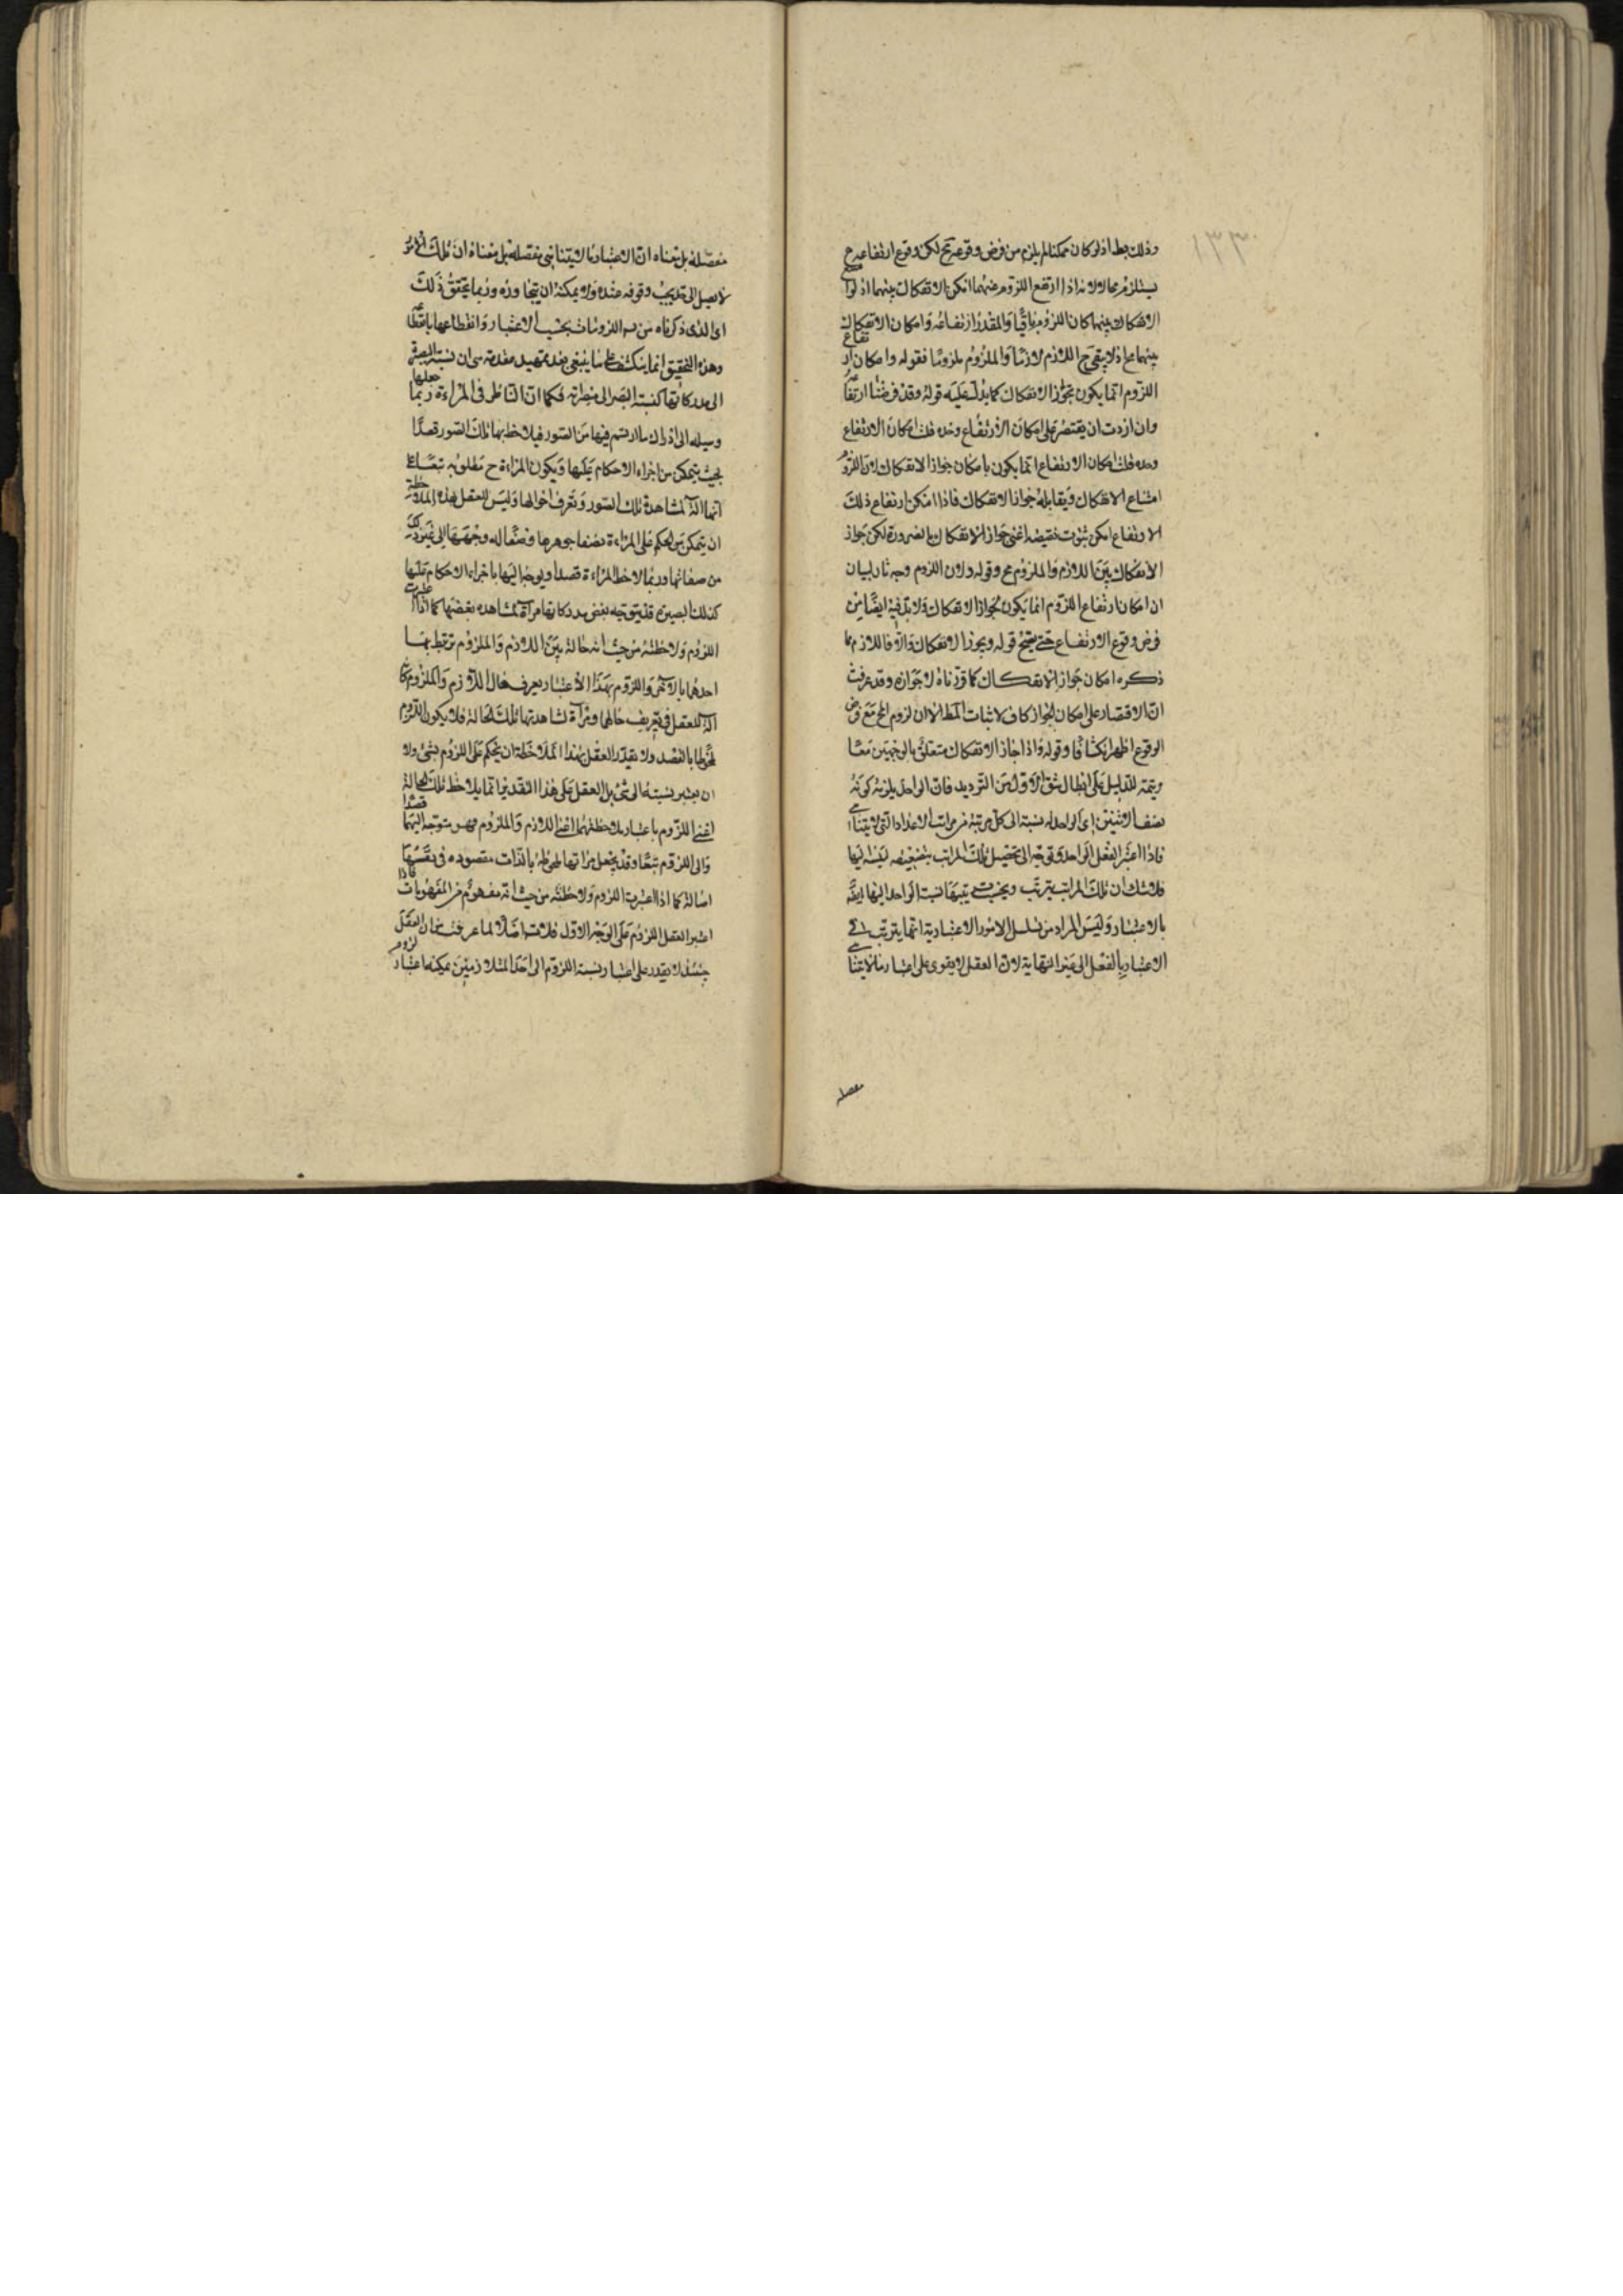 ١٣٣
وذلك بط اذ لو كان ممكنا لم يلزم من فرض وقوعه مح لكن وقوع ارتفاعه مح
يستلزم محالا لانه اذا ارتفع اللزوم عنهما امكن الانفكاك بينهما اذ لو امتنع
الانفكاك بينهما كان اللزوم باقيا والمقدر ارتفاعه وامكان الانفكاك
بينهما مح اذ لا يبقى ح اللازم لازما والملزوم ملزوما فقوله وامكان ارتفاع
اللزوم انما يكون بجواز الانفكاك كما يدل عليه قوله وقد فرضنا ارتفاعه
وان اردت ان يقتصر على امكان الارتفاع وحده قلت امكان الارتفاع
وحده قلت امكان الارتفاع انما يكون بامكان جواز الانفكاك لان اللزوم
امتناع الانفكاك ويقابله جواز الانفكاك فاذا امكن ارتفاع ذلك
الارتفاع امكن ثبوت نقيضه اعنى جواز الانفكاك بالضرورة لكن جواز
الانفكاك بين اللازم والملزوم مح وقوله ولان اللزوم وجه ثان لبيان
ان امكان ارتفاع اللزوم انما يكون بجواز الانفكاك ولا بد فيه ايضا من
فرض وقوع الارتفاع حتى يصح قوله ويجوز الانفكاك والا فاللازم مما
ذكره امكان جواز الانفكاك كما قررناه لا جوازه وقد عرفت
ان الاقتصار على امكان الجواز كاف لاثبات المط الا ان لزوم المح مع فرض
الوقوع اظهر انكشافا وقوله واذا جاز الانفكاك متعلق بالوجهين معا
وتتمة للدليل على ابطال الشق الاول من الترديد فان الواحد يلزمه كونه
نصف الاثنين اى الواحد له نسبة الى كل مرتبة من مراتب الاعداد التى لا يتناهى
فاذا اعتبر العقل الواحد وتوجه الى تحصيل تلك المراتب
فلا شك ان تلك المراتب يترتب ويترتب بحسبها نسبة الواحد اليها ايضا
بالاعتبار وليس المراد من تسلسل الامور الاعتبارية انها يترتب فى
الاعتبار بالفعل الى غير النهاية لان العقل لا يقوى على اعتبار ما لا يتناهى
مفصلة
مفصلة بل معناه ان الاعتبار ما لا يتناهى مفصلة بل معناه ان تلك الامور
لا يصل الى حد يجب وقوفه عنده ولا يمكنه ان يتجاوزه وربما يتحقق ذلك
اى الذى ذكرناه من اللزومات بحسب الاعتبار وانقطاعها بانقطاعه
وهذه التحقيق انما ينكشف على ما ينبغى بعد تمهيد مقدمة هى ان نسبة البصيرة
الى مدركاتها كنسبة البصر الى مبصراته فكما ان الناظر فى المراءة ربما جعلها
وسيلة الى ادراك ما ارتسم فيها من الصور فيلاحظ بها تلك الصور قصدا
بحيث يتمكن من اجراء الاحكام عليها ويكون المراءة ح ملحوظة تبعا على
انها آلة لمشاهدة تلك الصور وتعرف احوالها وليس للعقل بهذه الملاحظة
ان يتمكن من الحكم على المراءة بصفا جوهرها وصقاله وجهها الى غير ذلك
من صفاتها وربما لاحظ المراءة قصدا وتوجه اليها باجراء الاحكام عليها
كذلك البصيرة قد يتوجه بعض مدركاتها مرآة لمشاهدة بعضها كما اذا اعتبرت
اللزوم ولاحظته من حيث انه حالة بين اللازم والملزوم ترتبط بها
احدهما بالآخر واللزوم بهذا الاعتبار يعرف حال اللازم والملزوم كان
آلة للعقل فى تعريف حالهما ومرآة لمشاهدتها تلك الحالة فلا يكون اللزوم
ملحوظا بالقصد ولا يقدر العقل بهذا الملاحظة ان يحكم على اللزوم بشىء ولا
ان يعتبر نسبته الى شىء بل العقل على هذا التقدير انما يلاحظ تلك الحالة
اعنى اللزوم باعتبار ملاحظتهما اعنى اللازم والملزوم فهو متوجه اليهما قصدا
والى اللزوم تبعا وقد يجعل مرآتها ملحوظة بالذات مقصودة فى نفسها
اصالة كما اذا اعتبرت اللزوم ولاحظته من حيث انه مفهوم من المفهومات فاذا
اعتبر العقل اللزوم على الوجه الاول فلا تسلسل اصلا لما عرفت من ان العقل
حينئذ لا يقدر على اعتبار نسبة اللزوم الى احد المتلازمين يمكنه اعتبار لزوم